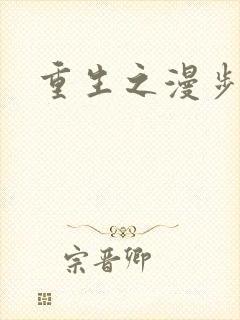 重生之漫步
宗晋卿